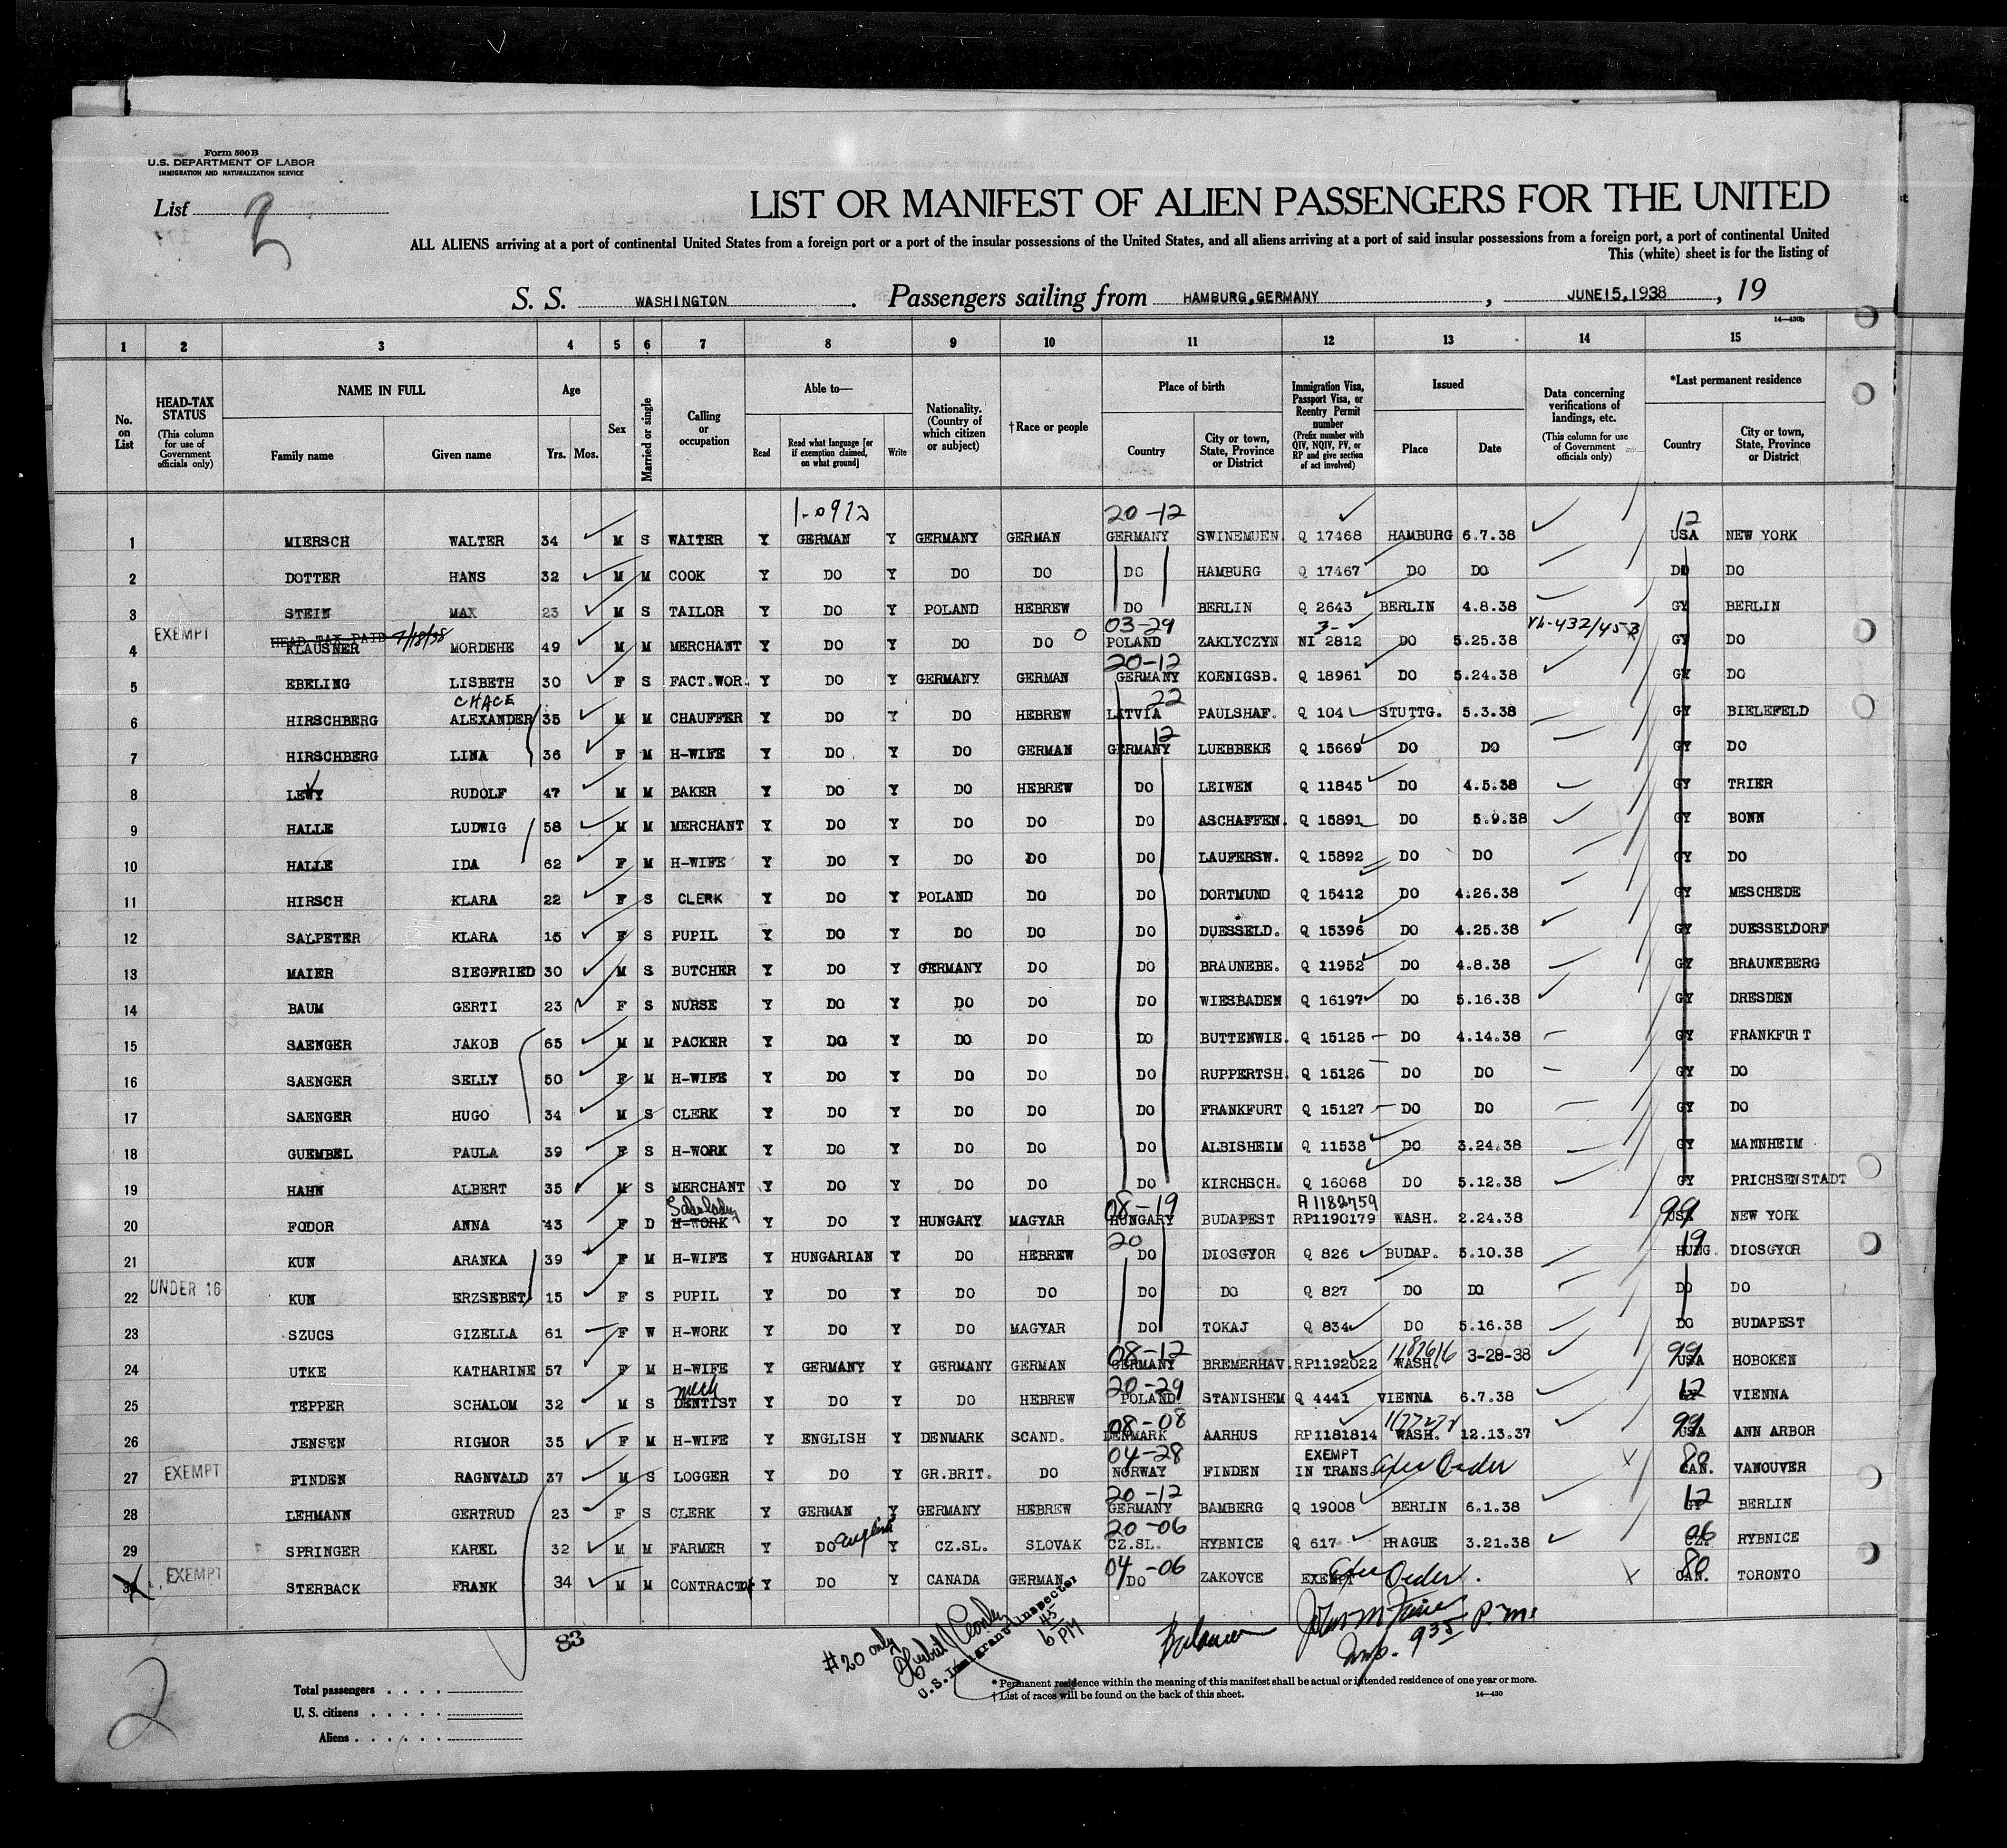 Form 500 B
U.S. DEPARTMENT OF LABOR
IMMIGRATION AND NATURALIZATION SERVICE
List 2
LIST OR MANIFEST OF ALIEN PASSENGERS FOR THE UNITED
ALL ALIENS arriving at a port of continental United States from a foreign port or a port of the insular possessions of the United States, and all aliens arriving at a port of said insular possessions from a foreign port, a port of continental United
This (white) sheet is for the listing of
S. S. WASHINGTON. Passengers sailing from HAMBURG,GERMANY, JUNE15,1938, 19
14—430b
1 2 3 4 5 6 7 8 9 10 11 12 13 14 15
No. on List
HEAD-TAX STATUS (This column for use of Government officials only)
NAME IN FULL Family name Given name
Age Yrs. Mos.
Sex
Married or single
Calling or occupation
Able to— Read Read what language [or if exemption claimed, on what ground] Write
Nationality. (Country of which citizen or subject)
†Race or people
Place of birth Country City or town, State, Province or District
Immigration Visa, Passport Visa, or Reentry Permit number (Prefix number with QIV, NQIV, PV, or RP and give section of act involved)
Issued Place Date
Data concerning verifications of landings, etc. (This column for use of Government officials only)
*Last permanent residence Country City or town, State, Province or District
1-0973 20-12 12
1 MIERSCH WALTER 34 M S WAITER Y GERMAN Y GERMANY GERMAN GERMANY SWINEMUEN. Q 17468 HAMBURG 6.7.38 USA NEW YORK
2 DOTTER HANS 32 M M COOK Y DO Y DO DO DO HAMBURG Q 17467 DO DO DO DO
3 STEIN MAX 23 M S TAILOR Y DO Y POLAND HEBREW DO BERLIN Q 2643 BERLIN 4.8.38 GY BERLIN
EXEMPT HEAD TAX PAID 7/18/38 03-29 3-
4 KLAUSNER MORDEHE 49 M M MERCHANT Y DO Y DO DO POLAND ZAKLYCZYN NI 2812 DO 5.25.38 GY DO
20-12
5 EBELING LISBETH 30 F S FACT.WOR. Y DO Y GERMANY GERMAN GERMANY KOENIGSB. Q 18961 DO 5.24.38 GY DO
CHACE 22
6 HIRSCHBERG ALEXANDER 35 M M CHAUFFER Y DO Y DO HEBREW LATVIA PAULSHAF. Q 104 STUTTG. 5.3.38 GY BIELEFELD
12
7 HIRSCHBERG LINA 36 F M H-WIFE Y DO Y DO GERMAN GERMANY LUEBBEKE Q 15669 DO DO GY DO
8 LEVY RUDOLF 47 M M BAKER Y DO Y DO HEBREW DO LEIWEN Q 11845 DO 4.5.38 GY TRIER
9 HALLE LUDWIG 58 M M MERCHANT Y DO Y DO DO DO ASCHAFFEN. Q 15891 DO 5.9.38 GY BONN
10 HALLE IDA 62 F M H-WIFE Y DO Y DO DO DO LAUFERSW. Q 15892 DO DO GY DO
11 HIRSCH KLARA 22 F S CLERK Y DO Y POLAND DO DO DORTMUND Q 15412 DO 4.26.38 GY MESCHEDE
12 SALPETER KLARA 15 F S PUPIL Y DO Y DO DO DO DUESSELD. Q 15396 DO 4.25.38 GY DUESSELDORF
13 MAIER SIEGFRIED 30 M S BUTCHER Y DO Y GERMANY DO DO BRAUNEBE. Q 11952 DO 4.8.38 GY BRAUNEBERG
14 BAUM GERTI 23 F S NURSE Y DO Y DO DO DO WIESBADEN Q 16197 DO 5.16.38 GY DRESDEN
15 SAENGER JAKOB 65 M M PACKER Y DO Y DO DO DO BUTTENWIE. Q 15125 DO 4.14.38 GY FRANKFURT
16 SAENGER SELLY 50 F M H-WIFE Y DO Y DO DO DO RUPPERTSH. Q 15126 DO DO GY DO
17 SAENGER HUGO 34 M S CLERK Y DO Y DO DO DO FRANKFURT Q 15127 DO DO GY DO
18 GUEMBEL PAULA 39 F S H-WORK Y DO Y DO DO DO ALBISHEIM Q 11538 DO 3.24.38 GY MANNHEIM
19 HAHN ALBERT 35 M S MERCHANT Y DO Y DO DO DO KIRCHSCH. Q 16068 DO 5.12.38 GY PRICHSENSTADT
Saleslady 08-19 A1182759 99
20 FODOR ANNA 43 F D H-WORK Y DO Y HUNGARY MAGYAR HUNGARY BUDAPEST RP1190179 WASH. 2.24.38 USA NEW YORK
20 19
21 KUN ARANKA 39 F M H-WIFE Y HUNGARIAN Y DO HEBREW DO DIOSGYOR Q 826 BUDAP. 5.10.38 HUNG. DIOSGYOR
UNDER 16
22 KUN ERZSEBET 15 F S PUPIL Y DO Y DO DO DO DO Q 827 DO DO DO DO
23 SZUCS GIZELLA 61 F W H-WORK Y DO Y DO MAGYAR DO TOKAJ Q 834 DO 5.16.38 DO BUDAPEST
08-12 1182616 99
24 UTKE KATHARINE 57 F M H-WIFE Y GERMANY Y GERMANY GERMAN GERMANY BREMERHAV. RP1192022 WASH. 3-28-38 USA HOBOKEN
mech 20-29 12
25 TEPPER SCHALOM 32 M S DENTIST Y DO Y DO HEBREW POLAND STANISHEM Q 4441 VIENNA 6.7.38 GY VIENNA
08-08 99
26 JENSEN RIGMOR 35 F M H-WIFE Y ENGLISH Y DENMARK SCAND. DENMARK AARHUS RP1181814 WASH. 12.13.37 USA ANN ARBOR
04-28 80
27 EXEMPT FINDEN RAGNVALD 37 M S LOGGER Y DO Y GR.BRIT. DO NORWAY FINDEN EXEMPT IN TRANS. X CAN. VANOUVER
20-12 12
28 LEHMANN GERTRUD 23 F S CLERK Y GERMAN Y GERMANY HEBREW GERMANY BAMBERG Q 19008 BERLIN 6.1.38 GY BERLIN
20-06 06
29 SPRINGER KAREL 32 M M FARMER Y DO english Y CZ.SL. SLOVAK CZ.SL. RYBNICE Q 617 PRAGUE 3.21.38 CZ. RYBNICE
04-06 80
30 EXEMPT STERBACK FRANK 34 M M CONTRACTOR Y DO Y CANADA GERMAN DO ZAKOVCE EXEMPT Order. X CAN. TORONTO
83
#20 only
U.S. Immigrant Inspector
6 45 PM
Balance
Insp. 9 35 P.M.
2
Total passengers
U. S. citizens
Aliens
* Permanent residence within the meaning of this manifest shall be actual or intended residence of one year or more.
† List of races will be found on the back of this sheet.
14—430